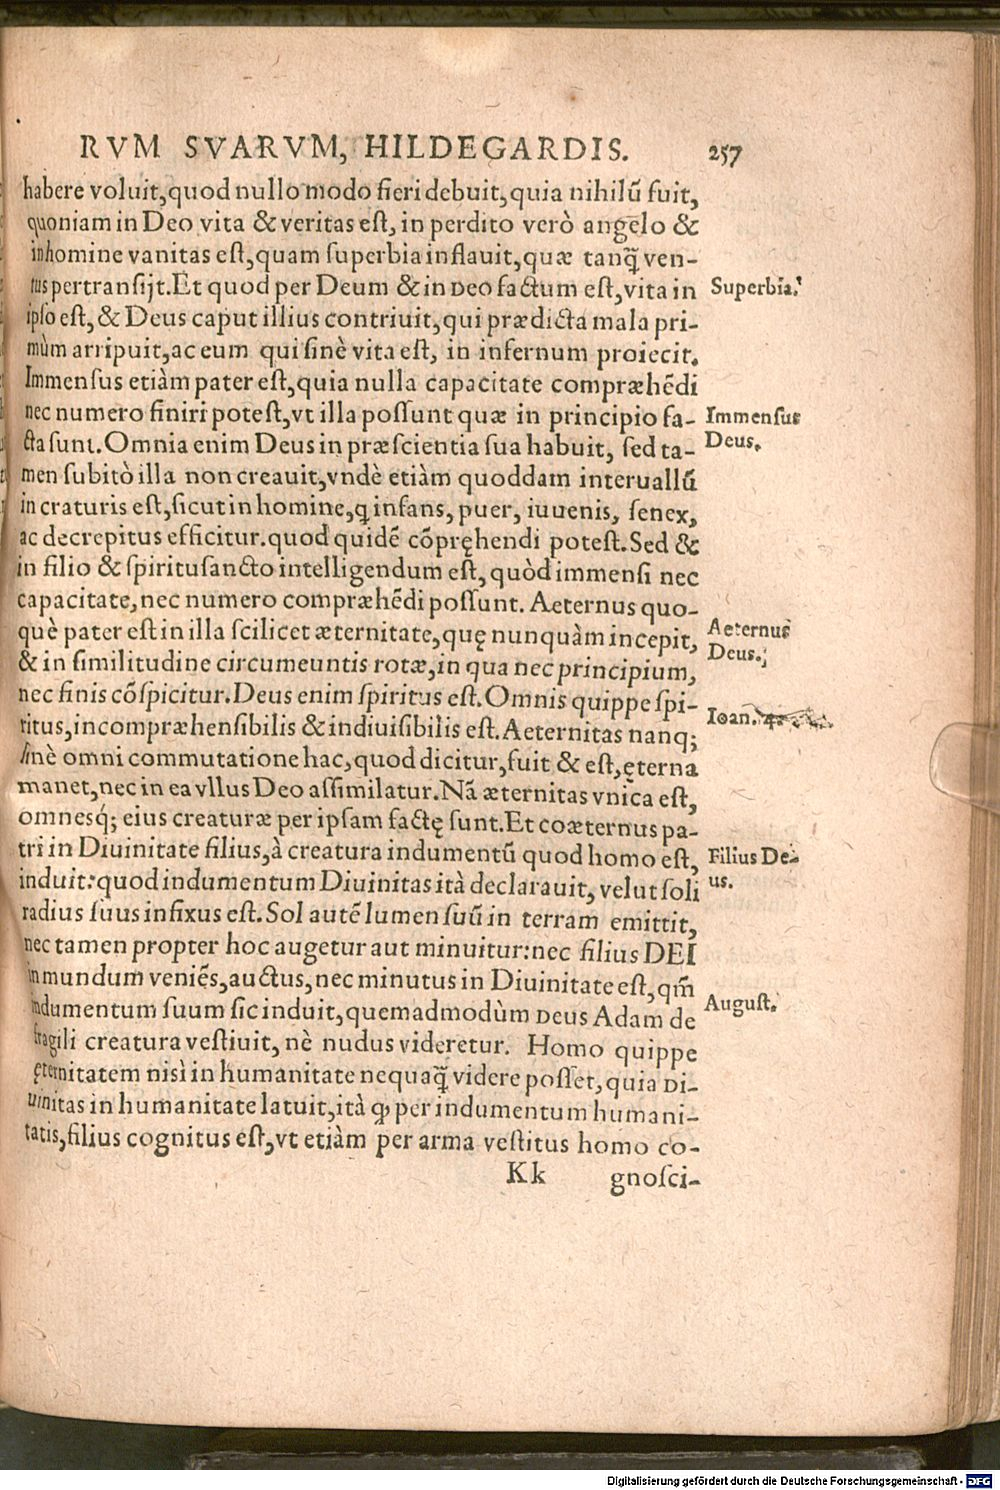 RVM SVARVM, HILDEGARDIS. 257
habere voluit, quod nullo modo fieri debuit, quia nihilũ fuit,
quoniam in Deo vita & veritas est, in perdito verò angelo &
inhomine vanitas est, quam superbia inflauit, quæ tanq̃ ven-
tus pertransijt. Et quod per Deum & in Deo factum est, vita in
Superbia.
ipso est, & Deus caput illius contriuit, qui prædicta mala pri-
mùm arripuit, ac eum qui sinè vita est, in infernum proiecit.
Immensus etiàm pater est, quia nulla capacitate compræhẽdi
nec numero finiri potest, vt illa possunt quæ in principio fa-
Immensus
cta sunt. Omnia enim Deus in præscientia sua habuit, sed ta-
Deus.
men subitò illa non creauit, vndè etiàm quoddam interuallũ
in craturis est, sicut in homine, q̃ infans, puer, iuuenis, senex,
ac decrepitus efficitur. quod quidẽ cõpręhendi potest. Sed &
in filio & spiritusancto intelligendum est, quòd immensi nec
capacitate, nec numero compræhẽdi possunt. Aeternus quo-
què pater est in illa scilicet æternitate, quę nunquàm incepit,
Aeternus
& in similitudine circumeuntis rotæ, in qua nec principium,
Deus.
nec finis cõspicitur. Deus enim spiritus est. Omnis quippe spi-
Ioan. 4.
ritus, incompræhensibilis & indiuisibilis est. Aeternitas nanq;
sinè omni commutatione hac, quod dicitur, fuit & est, ęterna
manet, nec in ea vllus Deo assimilatur. Nã æternitas vnica est,
omnesq́; eius creaturæ per ipsam factę sunt. Et coæternus pa-
tri in Diuinitate filius, à creatura indumentũ quod homo est,
Filius De-
induit: quod indumentum Diuinitas ità declarauit, velut soli
us.
radius suus infixus est. Sol autẽ lumen suũ in terram emittit,
nec tamen propter hoc augetur aut minuitur: nec filius DEI
in mundum veniẽs, auctus, nec minutus in Diuinitate est, qm̃
indumentum suum sic induit, quemadmodùm Deus Adam de
August.
fragili creatura vestiuit, nè nudus videretur. Homo quippe
ęternitatem nisì in humanitate nequaq̃ videre posset, quia Di-
uinitas in humanitate latuit, ità ꝙ per indumentum humani-
tatis, filius cognitus est, vt etiàm per arma vestitus homo co-
Kk gnosci-
Digitalisierung gefördert durch die Deutsche Forschungsgemeinschaft - DFG